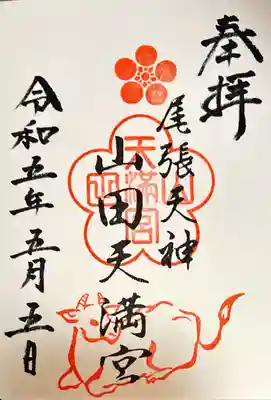 奉拝
尾張天神
山田天満宮
令和五年五月五日
山田
天満宮